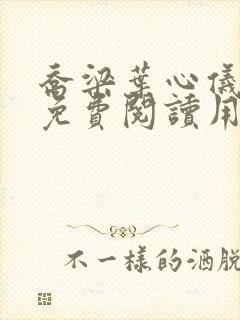 喬梁葉心儀
免費閱讀用
不一樣的洒脫